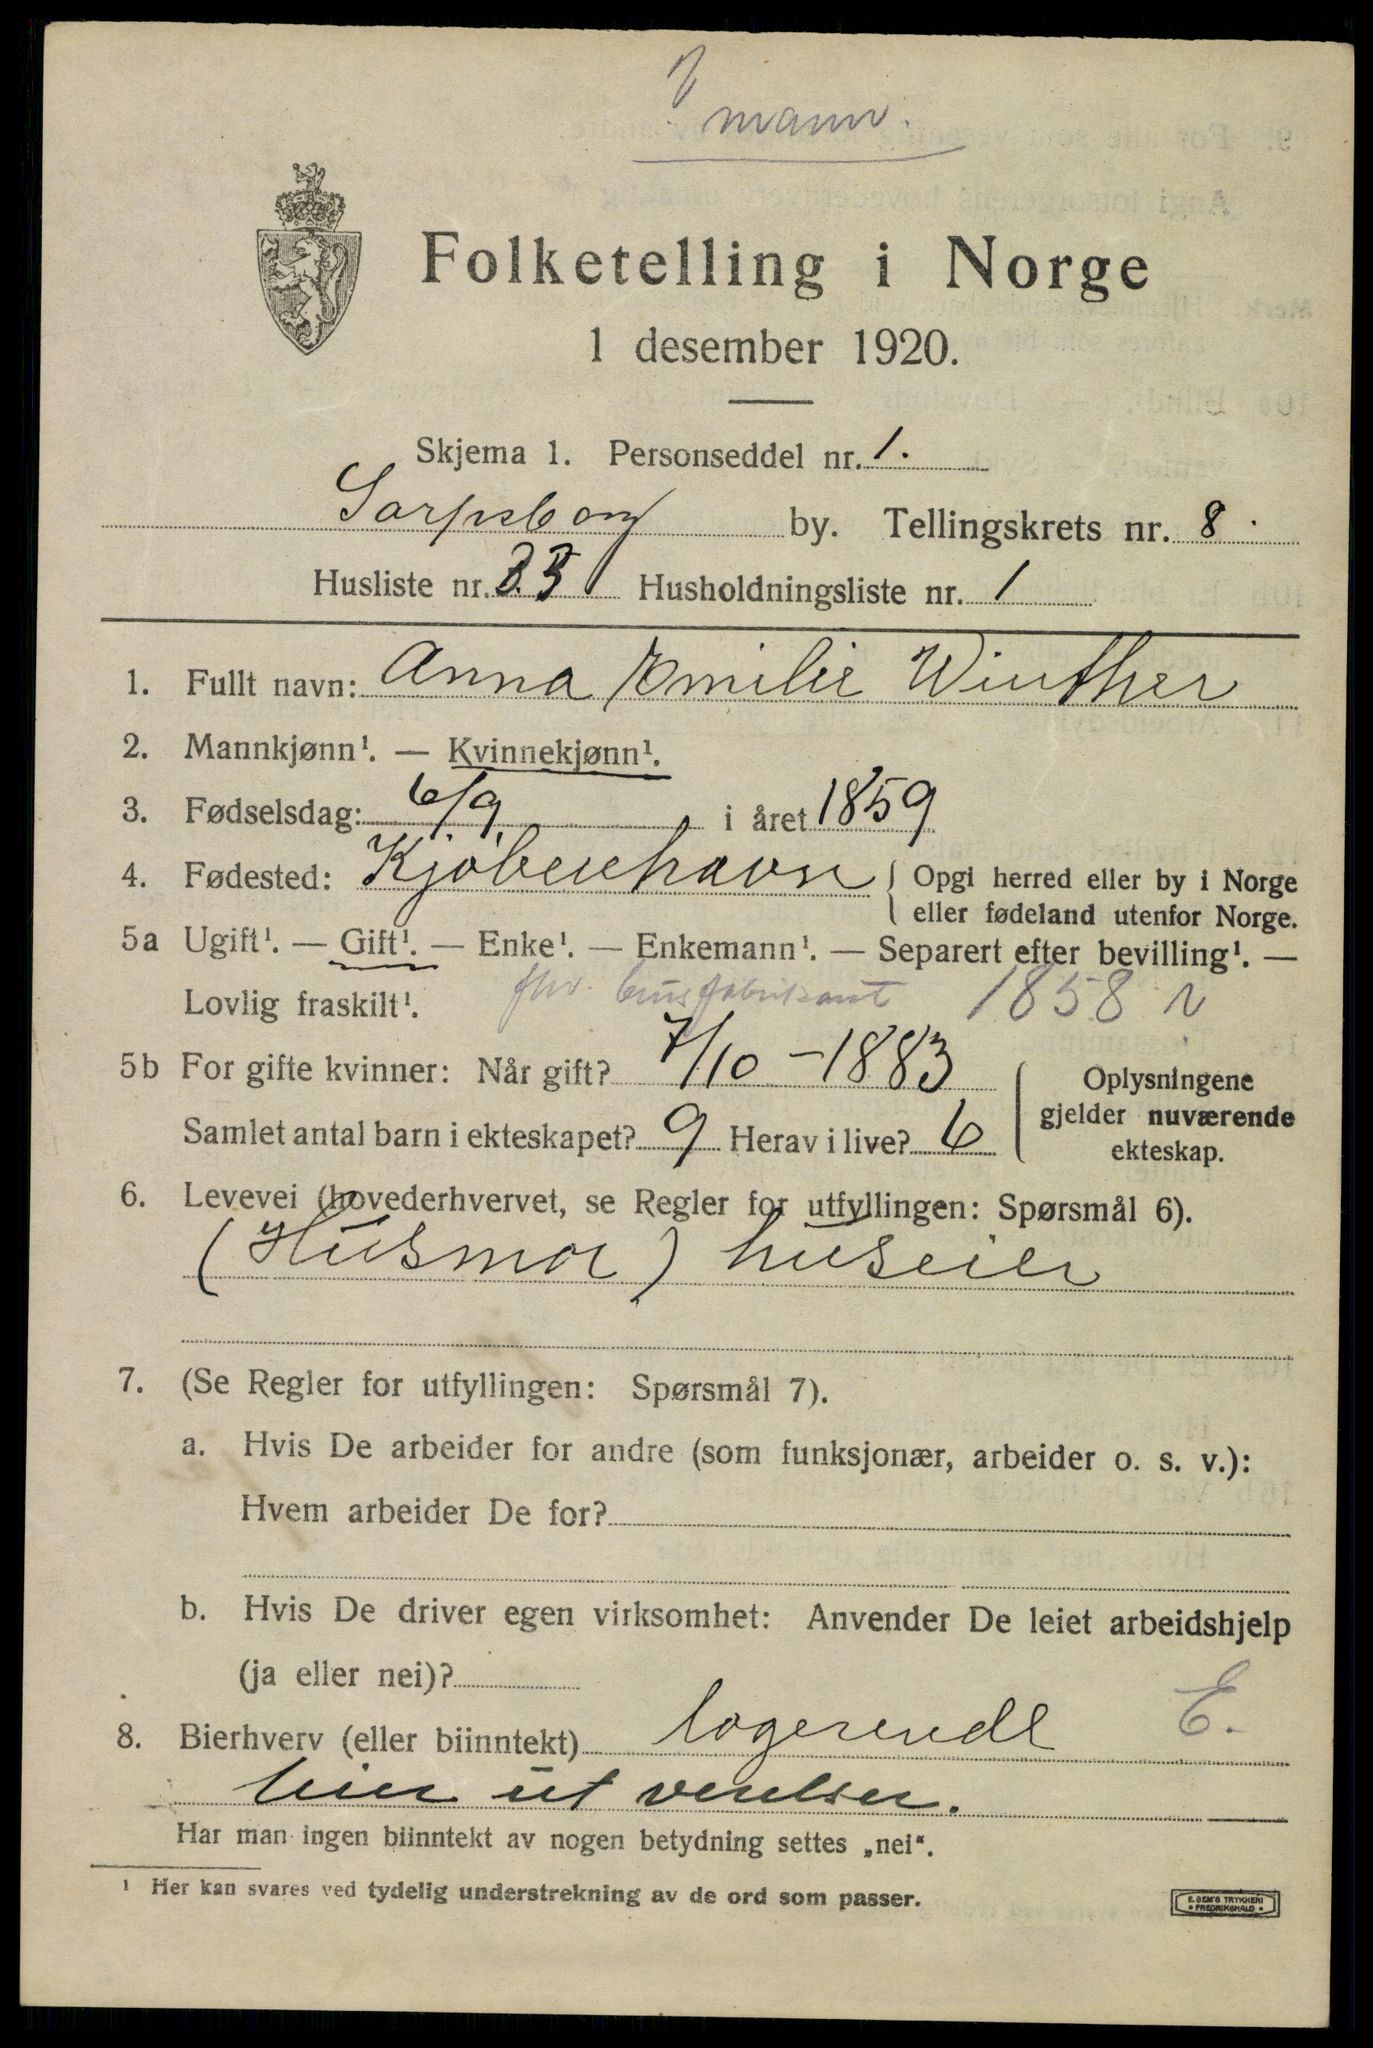 mann.
Folketelling i Norge
1 desember 1920.
Skjema 1. Personseddel nr. 1.
Sarpsborg by. Tellingskrets nr. 8.
Husliste nr. 33 Husholdningsliste nr. 1
1. Fullt navn: Anna Emilie Winther
2. Mannkjønn¹. — Kvinnekjønn¹.
3. Fødselsdag: 6/9 i året 1859
4. Fødested: Kjøbenhavn { Opgi herred eller by i Norge
eller fødeland utenfor Norge.
5a Ugift¹. — Gift¹. — Enke¹. — Enkemann¹. — Separert efter bevilling¹. —
Lovlig fraskilt¹. fhv. brusfabrikant 1858 N
5b For gifte kvinner: Når gift? 7/10 - 1883
Samlet antal barn i ekteskapet? 9 Herav i live? 6
Oplysningene
gjelder nuværende
ekteskap.
6. Levevei (hovederhvervet, se Regler for utfyllingen: Spørsmål 6).
(Husmor) huseier
7. (Se Regler for utfyllingen: Spørsmål 7).
a. Hvis De arbeider for andre (som funksjonær, arbeider o. s. v.):
Hvem arbeider De for?
b. Hvis De driver egen virksomhet: Anvender De leiet arbeidshjelp
(ja eller nei)?
8. Bierhverv (eller biinntekt) logerende E.
leier ut verelser.
Har man ingen biinntekt av nogen betydning settes „nei“.
¹ Her kan svares ved tydelig understrekning av de ord som passer.
E. SEM'S TRYKKERI
• FREDRIKSHALD •